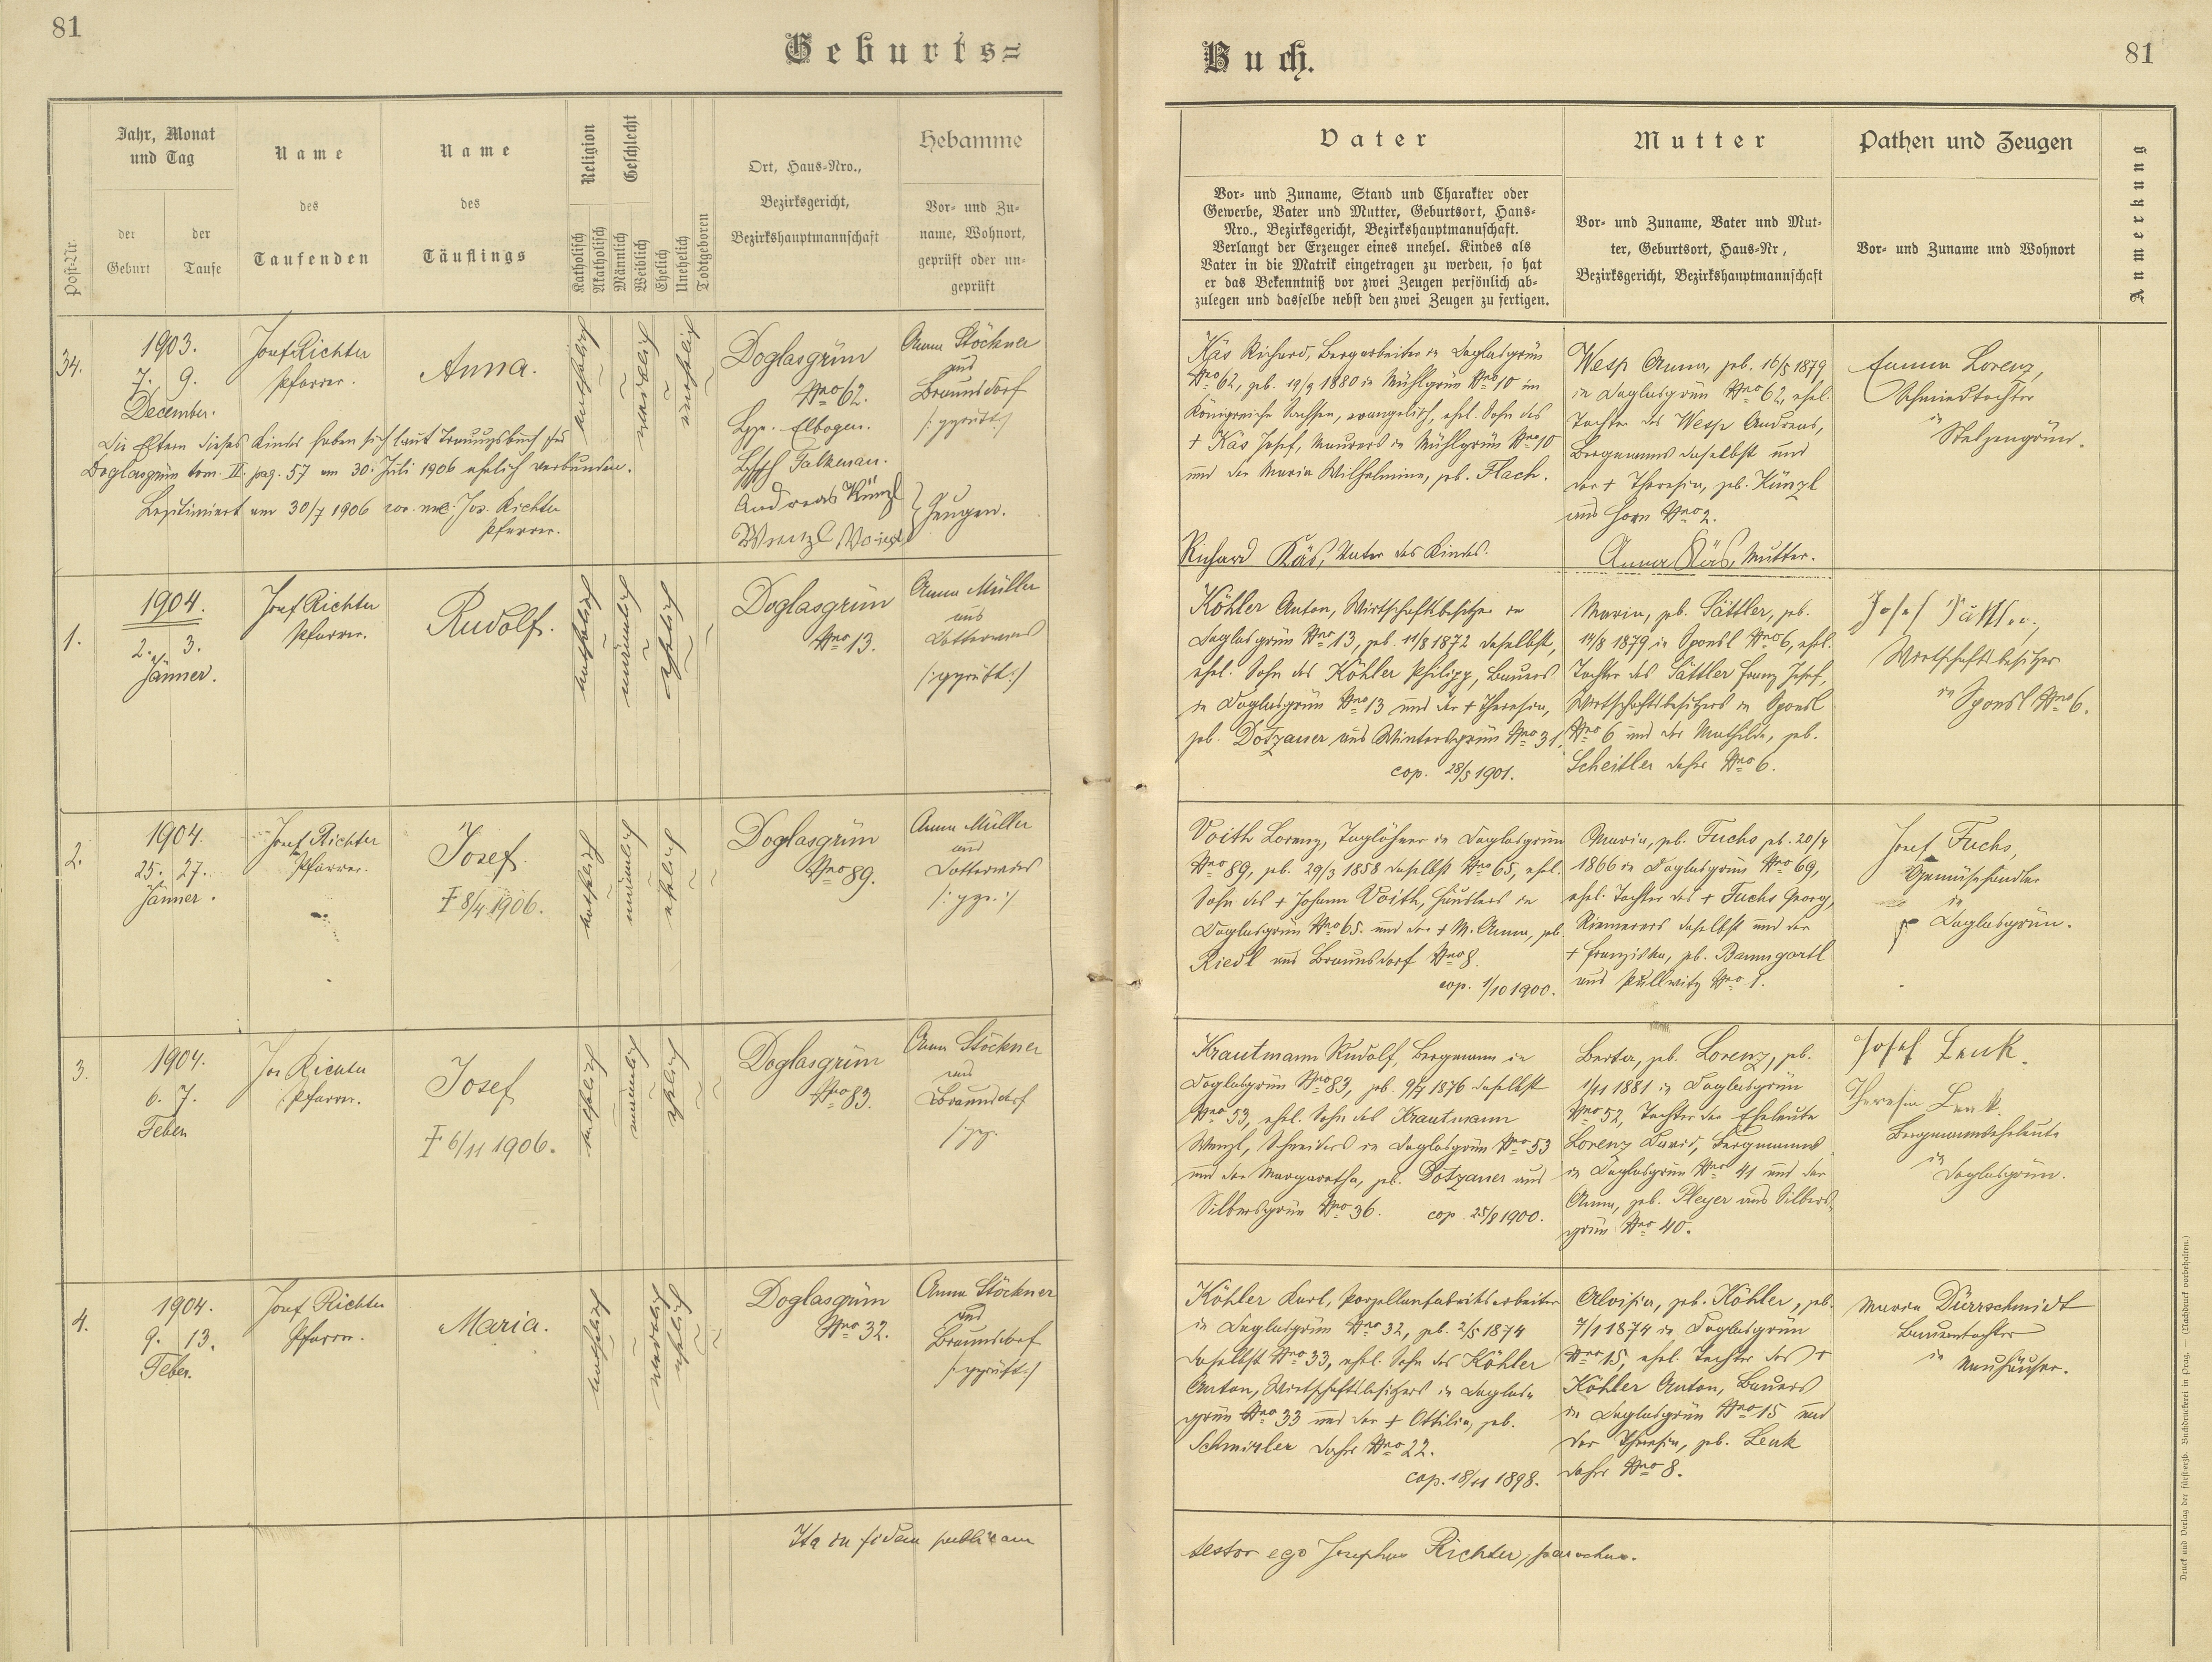 81
Geburts=
Jahr, Monat
und Tag
Name
des
Taufenden
Name
des
Täuflings
Religion
Geschlecht
Ort, Haus=Nro.,
Bezirksgericht,
Bezirkshauptmannschaft
Hebamme
Vor= und Zu=
name, Wohnort,
geprüft oder un=
geprüft
Post=Nr.
der
Geburt
der
Taufe
Katholisch
Akatholisch
Männlich
Weiblich
Ehelich
Unehelich
Todtgeboren
34.
1903.
7. 9.
December.
Josef Richter
Pfarrer.
Anna.
katholisch
weiblich
unehelich
Doglasgrün
Nro 62.
Bzg. Elbogen.
Falkenau.
Anna Stöckner
aus
Braunsdorf
/:geprüft:/
Die Eltern dieses Kindes haben sich laut Trauungsbuch
Doglasgrün tom. II. pag. 57 am 30. Juli 1906 ehelich verbunden.
Legitimiert am 30/7 1906 Jos. Richter
Pfarrer.
Andreas Künzl
Wenzl
Zeugen.
1.
1904.
2. 3.
Jänner.
Josef Richter
Pfarrer.
Rudolf.
katholisch
männlich
ehelich
Doglasgrün
Nro 13.
Anna Müller
aus
/:geprüft:/
2.
1904.
25. 27.
Jänner.
Josef Richter
Pfarrer.
Josef.
† 8/4 1906.
katholisch
männlich
ehelich
Doglasgrün
Nro 89.
Anna Müller
aus
/:gepr.:/
3.
1904.
6. 7.
Feber
Jos Richter
Pfarrer.
Josef
† 6/11 1906.
katholisch
männlich
ehelich
Doglasgrün
Nro 83.
Anna Stöckner
aus
Braunsdorf
4.
1904.
9. 13.
Feber.
Josef Richter
Pfarrer.
Maria.
katholisch
weiblich
ehelich
Doglasgrün
Nro 32.
Anna Stöckner
aus
Braunsdorf
/:geprüft:/
Ita in fidem publicam
Buch.
81
Vater
Vor= und Zuname, Stand und Charakter oder
Gewerbe, Vater und Mutter, Geburtsort, Haus=
Nro., Bezirksgericht, Bezirkshauptmannschaft.
Verlangt der Erzeuger eines unehel. Kindes als
Vater in die Matrik eingetragen zu werden, so hat
er das Bekenntniß vor zwei Zeugen persönlich ab=
zulegen und dasselbe nebst den zwei Zeugen zu fertigen.
Mutter
Vor= und Zuname, Vater und Mut=
ter, Geburtsort, Haus=Nr,
Bezirksgericht, Bezirkshauptmannschaft
Pathen und Zeugen
Vor= und Zuname und Wohnort
Anmerkung
Käs Richard, Bergarbeiter in Doglasgrün
Nro 62, geb. 19/9 1880 in Mühlgrün Nro 10 im
Königreiche Sachsen, evangelisch, ehel. Sohn des
+ Käs Josef, Maurers in Mühlgrün Nro 10
und der Maria Wilhelmine, geb. Flach.
Richard Käs, Vater des Kindes.
Wesp Anna, geb. 16/5 1879
in Doglasgrün Nro 62, ehel.
Tochter des Wesp Andreas,
Bergmanns daselbst und
der + Theresia, geb. Künzl
aus Horn Nro 2.
Anna Käs, Mutter.
Emma Lorenz,
Schmiedtochter
in
Stelzengrün.
Köhler Anton, Wirtschaftsbesitzer in
Doglasgrün Nro 13, geb. 11/8 1872 daselbst,
ehel. Sohn des Köhler Philipp, Bauers
in Doglasgrün Nro 13 und der + Theresia,
geb. Dotzauer aus Wintersgrün Nro 31.
cop. 28/5 1901.
Maria, geb. Sättler, geb.
14/8 1879 in Sponsl Nro 6, ehel.
Tochter des Sättler Franz Josef,
Wirtschaftsbesitzers in Sponsl
Nro 6 und der Mathilde, geb.
Scheitler daher Nro 6.
Josef
Wirtschaftsbesitzer
in Sponsl Nro 6.
Voith Lorenz, Taglöhner in Doglasgrün
Nro 89, geb. 29/3 1858 daselbst Nro 65, ehel.
Sohn des + Johann Voith, Häuslers in
Doglasgrün Nro 65. und der + M. Anna, geb.
Riedl aus Braunsdorf Nro 8.
cop. 1/10 1900.
Maria, geb. Fuchs geb. 20/4
1866 in Doglasgrün Nro 69,
ehel. Tochter des + Fuchs Georg,
daselbst und der
+ Franziska, geb. Baumgartl
aus Pullwitz Nro 1.
Josef Fuchs,
Gemüsehändler
in
Doglasgrün.
Krautmann Rudolf, Bergmann in
Doglasgrün Nro 83, geb. 9/7 1876 daselbst
Nro 53, ehel. Sohn des Krautmann
Wenzl, Schneiders in Doglasgrün Nro 53
und der Margaretha, geb. Dotzauer aus
Silbersgrün Nro 36. cop. 25/8 1900.
Berta, geb. Lorenz, geb.
1/11 1881 in Doglasgrün
Nro 52, Tochter der Eheleute
Lorenz David, Bergmanns
in Doglasgrün Nro 41 und der
Anna, geb. Pleyer aus Silbers=
grün Nro 40.
Josef Lenk.
Theresia Lenk.
Bergmannseheleute
in
Doglasgrün.
Köhler Karl, Porzellanfabriksarbeiter
in Doglasgrün Nro 32, geb. 2/5 1874
daselbst Nro 33, ehel. Sohn des Köhler
Anton, Wirtschaftsbesitzers in Doglas=
grün Nro 33 und der + Ottilia, geb.
Schmidler daher Nro 22.
cop. 18/11 1898.
Aloisia, geb. Köhler, geb.
7/1 1874 in Doglasgrün
Nro 15, ehel. Tochter des +
Köhler Anton, Bauers
in Doglasgrün Nro 15 und
der Theresia, geb. Lenk
daher Nro 8.
Maria Dürrschmidt
Bauerntochter
in
Neuhäuser.
testor ego Josephus Richter, parochus.
Druck und Verlag der fürsterzb. Buchdruckerei in Prag. — (Nachdruck vorbehalten.)